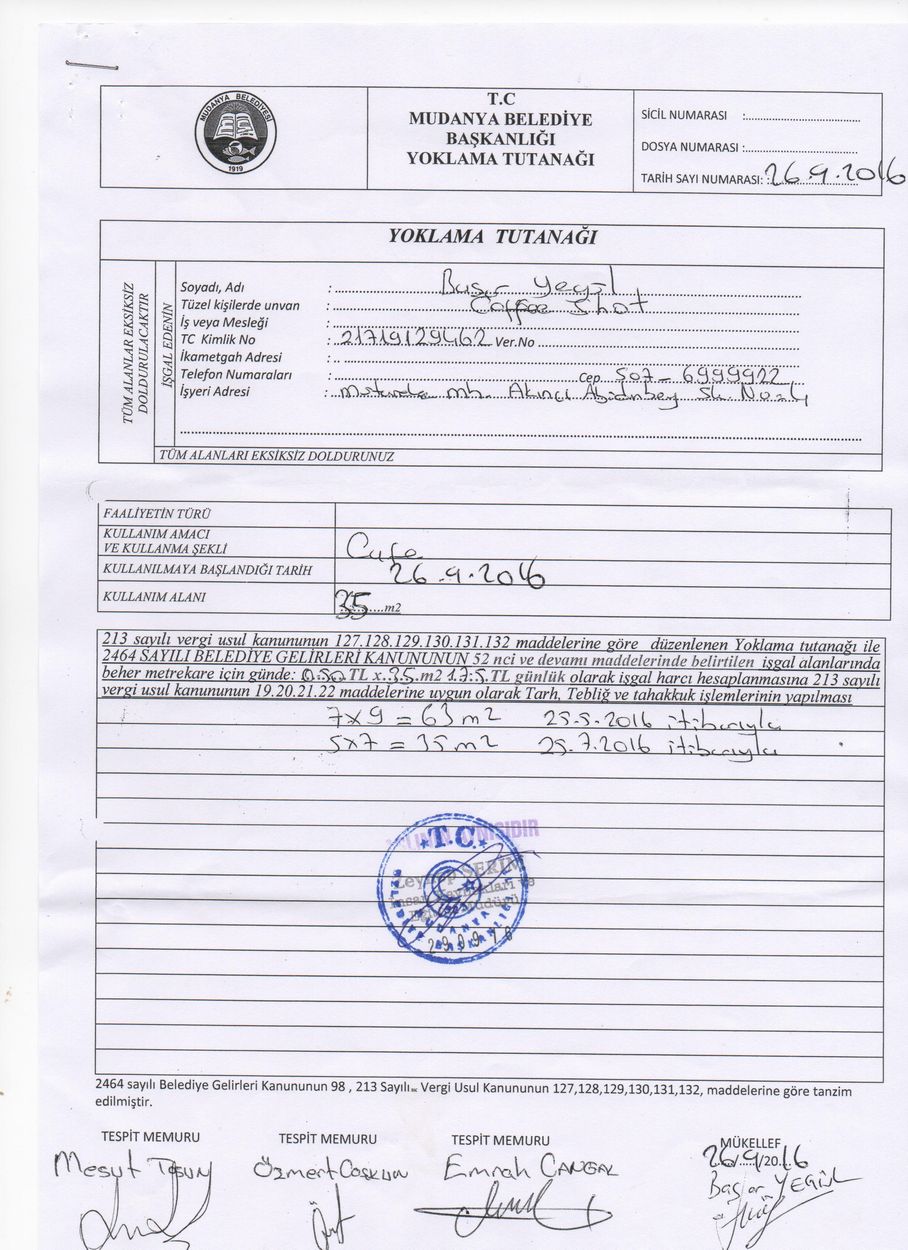 MUDANYA BELEDİYESİ
1919
T.C
MUDANYA BELEDİYE
BAŞKANLIĞI
YOKLAMA TUTANAĞI
SİCİL NUMARASI :
DOSYA NUMARASI :
TARİH SAYI NUMARASI: 26.9.2016
YOKLAMA TUTANAĞI
TÜM ALANLAR EKSİKSİZ
DOLDURULACAKTIR
İŞGAL EDENİN
Soyadı, Adı :
Tüzel kişilerde unvan : Coffee Shot
İş veya Mesleği :
TC Kimlik No : 21719129462 Ver.No
İkametgah Adresi :
Telefon Numaraları : cep 507 - 6999922
İşyeri Adresi : mh. No:4
TÜM ALANLARI EKSİKSİZ DOLDURUNUZ
FAALİYETİN TÜRÜ
KULLANIM AMACI
VE KULLANMA ŞEKLİ Cafe
KULLANILMAYA BAŞLANDIĞI TARİH 26.9.2016
KULLANIM ALANI 35 m2
213 sayılı vergi usul kanununun 127.128.129.130.131.132 maddelerine göre düzenlenen Yoklama tutanağı ile
2464 SAYILI BELEDİYE GELİRLERİ KANUNUNUN 52 nci ve devamı maddelerinde belirtilen işgal alanlarında
beher metrekare için günde: 0.50 TL x 35 m2 17.5 TL günlük olarak işgal harcı hesaplanmasına 213 sayılı
vergi usul kanununun 19.20.21.22 maddelerine uygun olarak Tarh, Tebliğ ve tahakkuk işlemlerinin yapılması
7x9 = 63 m2 25.5.2016 itibarıyla
5x7 = 35 m2 25.7.2016 itibarıyla
T.C.
2464 sayılı Belediye Gelirleri Kanununun 98 , 213 Sayılı Vergi Usul Kanununun 127,128,129,130,131,132, maddelerine göre tanzim
edilmiştir.
TESPİT MEMURU TESPİT MEMURU TESPİT MEMURU MÜKELLEF
26/9/2016
Mesut Tosun Özmert Coşkun Emrah CANGAL